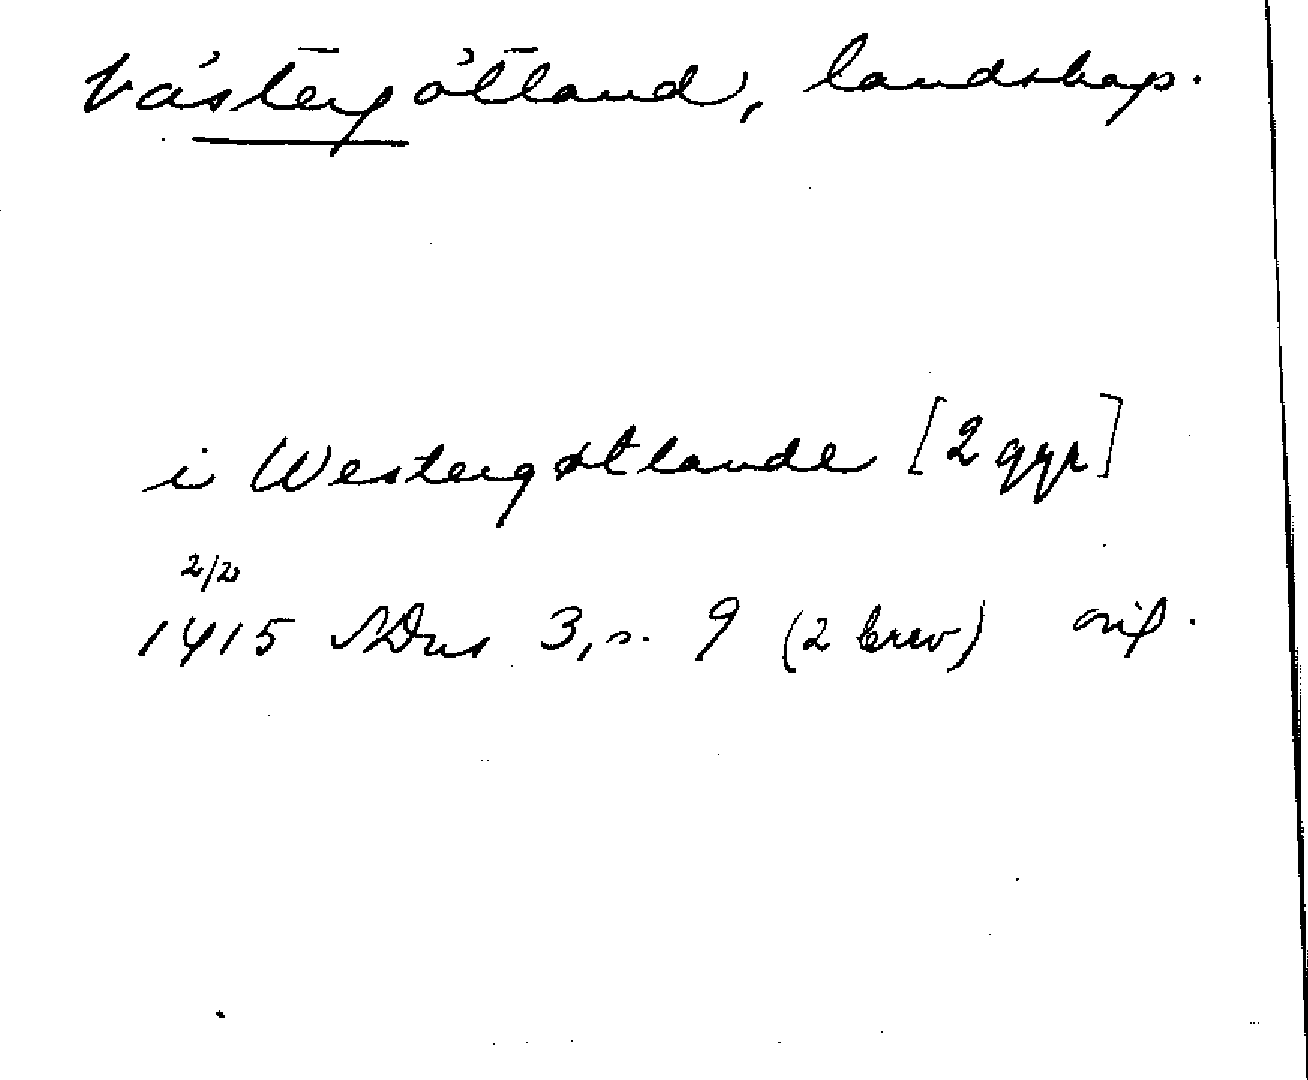 Västergötland, landskap.
i Westergøtlande [2 ggr]
2/2
1415 SDns 3, s. 9 (2 brev) orig.